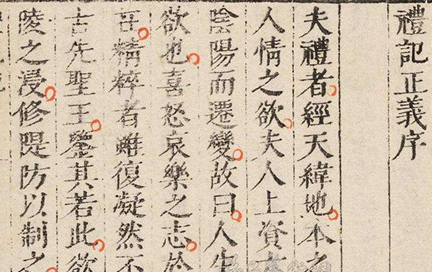 禮記正義序
夫禮者經天緯地本之
人情之欲夫人上資
陰陽而遷變故曰人生
欲也喜怒哀樂之志於
精粹者雖復凝然不
古先聖王鑒其若此欲
陵之浸修隄防以制之